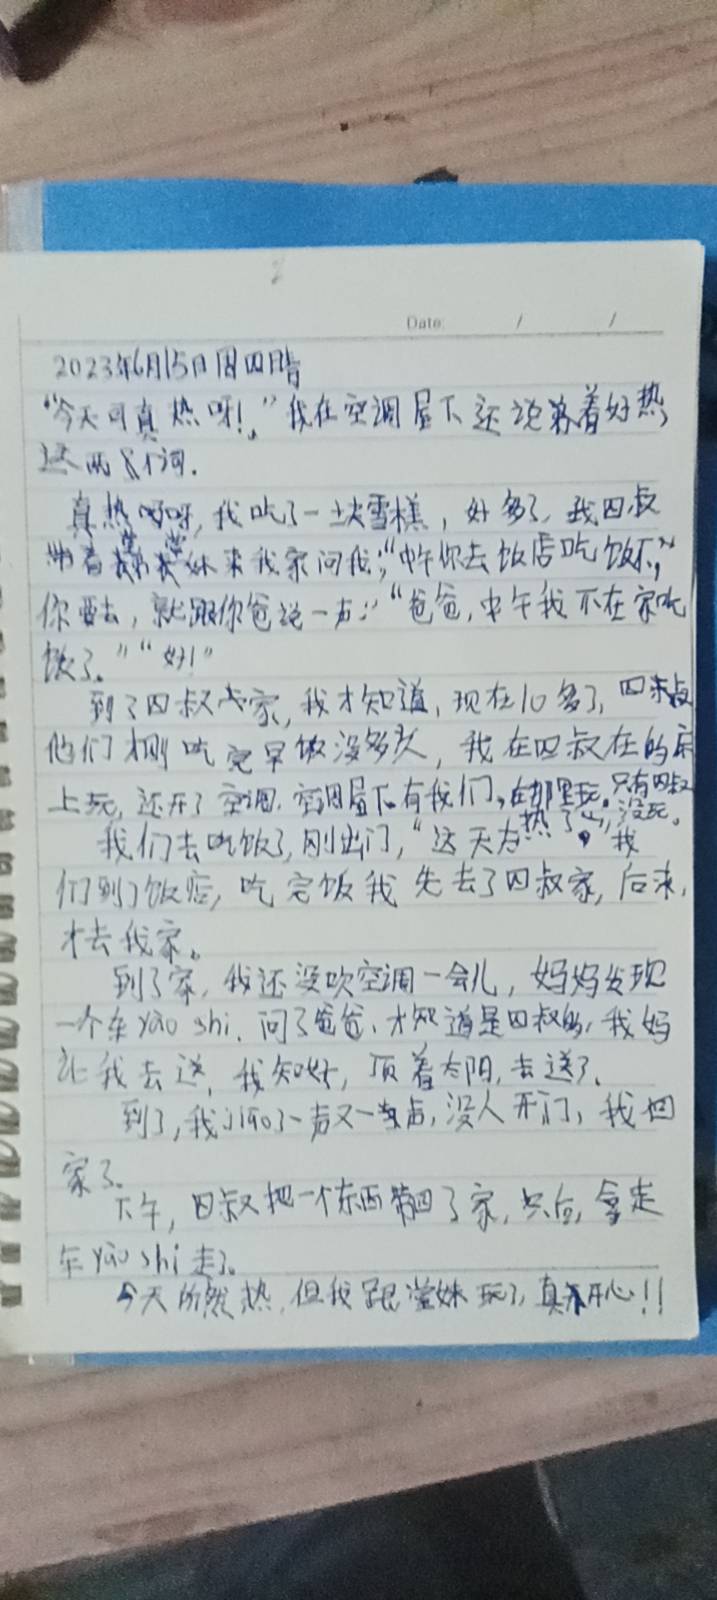 Date: / /
2023年6月15日周四晴
“今天可真热呀！”我在空调屋下还说着好热
这两个词.
真热呀呀,我吃了一块雪糕，好多了，我四叔
带着莹莹妹来我家问我,“中午你去饭店吃饭不,”
你要去，就跟你爸说一声:“爸爸,中午我不在家吃
饭了。”“好!”
到了四叔家,我才知道,现在10多了,四叔
他们才刚吃完早饭没多久，我在四叔在的床
上玩,还开了空调.空调屋下有我们,在那里玩。只有四叔
没玩。
我们去吃饭了,刚出门,“这天太热了”,我
们到了饭店,吃完饭我先去了四叔家,后来,
才去我家。
到了家,我还没吹空调一会儿，妈妈发现
一个车yào shi.问了爸爸,才知道是四叔的,我妈
让我去送,我知好,顶着太阳,去送了.
到了,我叫了一声又一声,没人开门,我回
家了.
下午,四叔把一个东西带回了家,然后,拿走
车yào shi走了.
今天所然热,但我跟莹妹玩了,真开心!!